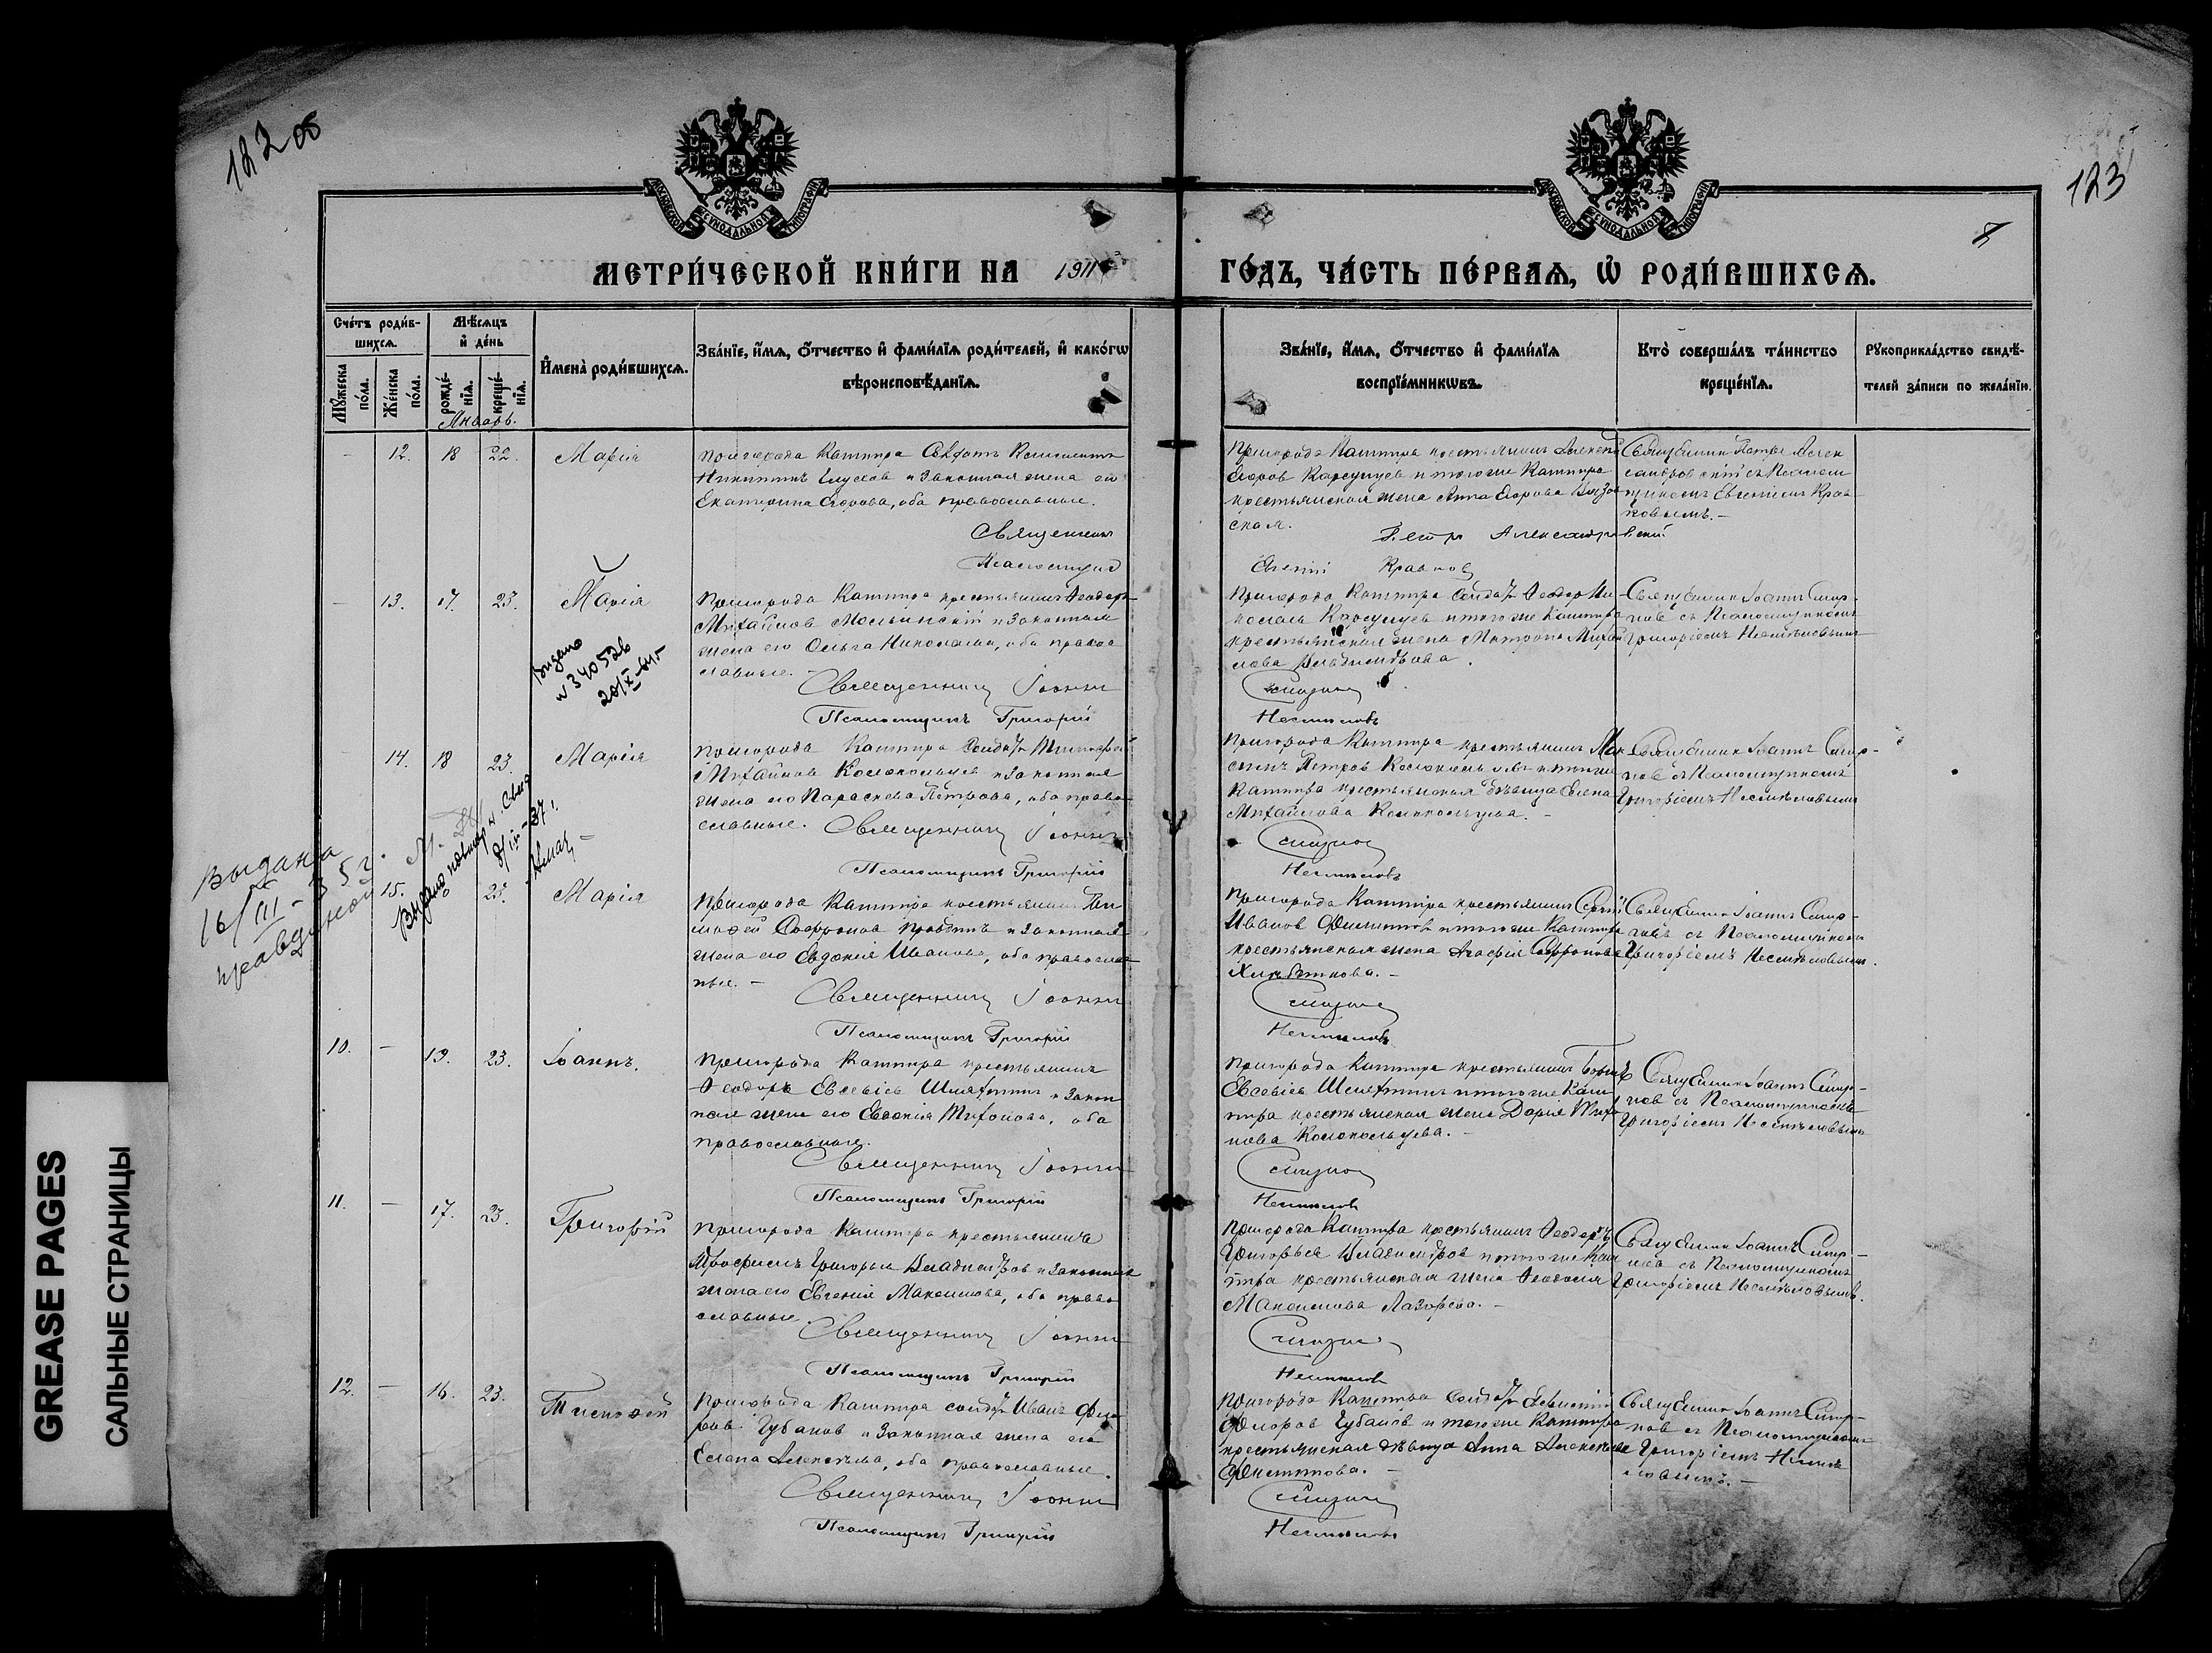 122 об
123
МЕТРИ́ЧЕСКОЙ КНИ́ГИ НА 1911
ГО́ДЪ, ЧА́СТЬ ПЕ́РВАѦ, Ѽ РОДИ́ВШИХСѦ.
Сче́тъ роди́в-
шихсѧ.
Мꙋ́жеска
по́ла.
Же́нска
по́ла.
Мѣ́сѧцъ
и҆ де́нь
рожде́-
нїѧ.
креще́-
нїѧ.
Январь.
И҆мена̀ роди́вшихсѧ.
Зва́нїе, и҆́мѧ, о҆́тчество и҆ фами́лїѧ роди́телей, и҆ како́гѡ
вѣроисповѣ́данїѧ.
Зва́нїе, и҆́мѧ, о҆́тчество и҆ фами́лїѧ
воспрїе́мникѡвъ.
Кто̀ соверша́лъ та́инство
креще́нїѧ.
Рꙋкоприкла́дство свидѣ́-
телей за́писи по жела́нїю.
- 12. 18 22. Марія
пригорода Каштира
Никитинъ и законная жена его
Екатерина Егорова, оба православные.
Священникъ
Псаломщикъ
Пригорода Каштира крестьянинъ
Егоров Карсунцев и тогоже Каштира
крестьянская жена Анна Егорова
ская.
Петръ Александровскій
Евгеній Кравков
Священник Петръ Алек
сандровскій съ Псалом
щиком Евгеніем Крав
ковымъ. -
- 13. 17. 23. Марія
Выдано
20/X
Пригорода Каштира крестьянинъ Ѳеодоръ
Михайлов и законная
жена его Ольга Николаева, оба правос
лавные.
Священникъ Іоаннъ
Псаломщикъ Григорій
Пригорода Каштира солдатъ Ѳеодор Ни
колаев Карсунцев и тогоже Каштира
крестьянская жена Матрона Михай
лова Владимірова.
Смирнов
Несмѣловъ
Священник Іоаннъ Смир-
нов съ Псаломщикомъ
Григоріемъ Несмѣловымъ
14. 18 23. Марія
пригорода Каштира солдатъ Тимофей
Михайлов Колокольцев и законная
жена его Параскева Петрова, оба право
славные. Священникъ Іоаннъ
Псаломщикъ Григорій
Пригорода Каштира крестьянинъ Мак
симъ Петров Колокольцевъ и тогоже
Каштира крестьянская дѣвица Елена
Михайлова Колокольцева. -
Смирнов
Несмѣловъ
Священник Іоаннъ Смир-
нов съ Псаломщикомъ
Григоріемъ Несмѣловымъ
Выдана
16/III - 35 г.
15. 23. Марія
Пригорода Каштира крестьянинъ Ти
мофей Софронов и законная
жена его Евдокія Иванова, оба православ
ные. - Священникъ Іоаннъ
Псаломщикъ Григорій
Пригорода Каштира крестьянинъ Сергій
Иванов Филиппов и тогоже Каштира
крестьянская жена Агафія Софронова
Смирнов
Несмѣловъ
Священник Іоаннъ Смир-
нов съ Псаломщикомъ
Григоріемъ Несмѣловым.
10. - 19. 23. Іоаннъ.
Пригорода Каштира крестьянинъ
Ѳеодоръ Евсевіев и закон
ная жена его Евгенія Тихонова, оба
православные.
Священникъ Іоаннъ
Псаломщикъ Григорій
Пригорода Каштира крестьянинъ Борисъ
Евсевіев и тогоже Каш
тира крестьянская жена Дарія Тихо
нова Колокольцева. -
Смирнов
Несмѣловъ
Священник Іоаннъ Смир-
нов съ Псаломщикомъ
Григоріемъ Несмѣловымъ
11. - 17. 23. Григорій
Пригорода Каштира крестьянинъ
Трофимъ Григорьев Владиміров и законная
жена его Евгенія Максимова, оба право
славные.
Священникъ Іоаннъ
Псаломщикъ Григорій
Пригорода Каштира крестьянинъ Ѳеодоръ
Григорьев Владиміров и тогоже Каш
тира крестьянская жена Ѳеодосія
Максимова Лазарева. -
Смирнов
Несмѣловъ
Священник Іоаннъ Смир-
нов съ Псаломщикомъ
Григоріемъ Несмѣловымъ.
12. - 16. 23. Тимофей
Пригорода Каштира солдатъ Иванъ Фло
ров Губанов и законная жена его
Елена Алексѣева, оба православные.
Священникъ Іоаннъ
Псаломщикъ Григорій
Пригорода Каштира солдатъ
Флоров Губанов и тогоже Каштира
крестьянская дѣвица Анна Алексѣева
Филиппова. -
Смирнов
Несмѣловъ
Священник Іоаннъ Смир-
нов съ Псаломщикомъ
Григоріемъ Несмѣ
ловымъ. -
GREASE PAGES
САЛЬНЫЕ СТРАНИЦЫ